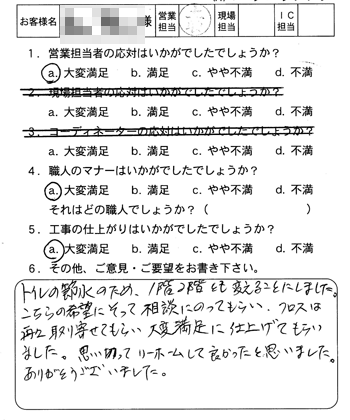 お客様名 様 営業担当 現場担当 IC担当
1．営業担当者の応対はいかがでしたでしょうか？
a. 大変満足 b. 満足 c. やや不満 d. 不満
2．現場担当者の応対はいかがでしたでしょうか？
a. 大変満足 b. 満足 c. やや不満 d. 不満
3．コーディネーターの応対はいかがでしたでしょうか？
a. 大変満足 b. 満足 c. やや不満 d. 不満
4．職人のマナーはいかがでしたでしょうか？
a. 大変満足 b. 満足 c. やや不満 d. 不満
それはどの職人でしょうか？（ ）
5．工事の仕上がりはいかがでしたでしょうか？
a. 大変満足 b. 満足 c. やや不満 d. 不満
6．その他、ご意見・ご要望をお書き下さい。
トイレの節水のため、1階2階とも変えることにしました。
こちらの希望にそって相談にのってもらい、クロスは
再度取り寄せてもらい大変満足に仕上げてもらい
ました。思い切ってリーホームして良かったと思いました。
ありがとうございました。